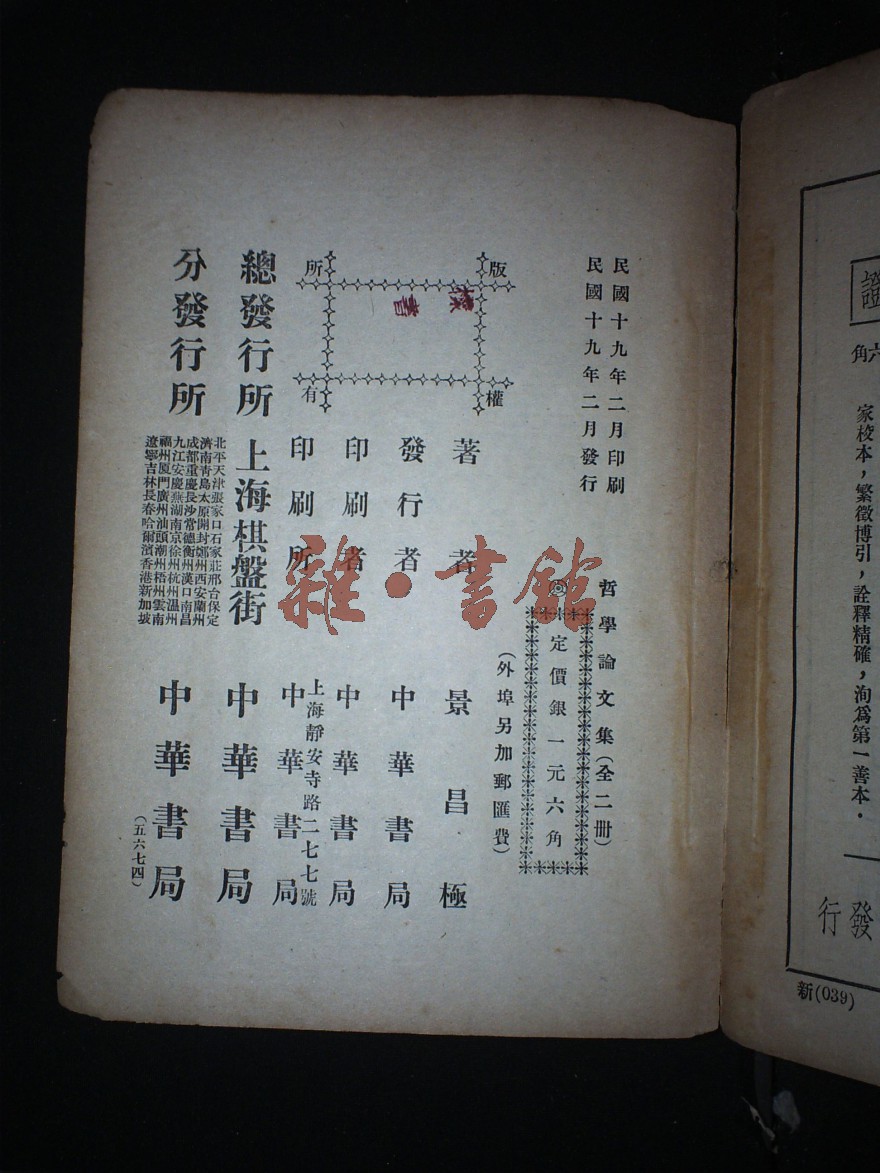 民國十九年二月印刷
民國十九年二月發行
哲學論文集(全二册)
定價銀一元六角
(外埠另加郵匯費)
版權
所有
樣書
著者 景昌極
發行者 中華書局
印刷者 中華書局
上海靜安寺路二七七號
印刷所 中華書局
總發行所 上海棋盤街 中華書局
分發行所
北平天津張家口石家莊邢台保定
濟南青島太原開封鄭州西安蘭州
成都重慶長沙常德衡州漢口南昌
九江安慶蕪湖南京徐州杭州溫州
福州厦門廣州汕頭潮州梧州雲南
遼寧吉林長春哈爾濱香港新加坡
中華書局
(五六七四)
雜·書館
證
六角
家校本,繁徵博引,詮釋精確,洵爲第一善本.
發行
新(039)